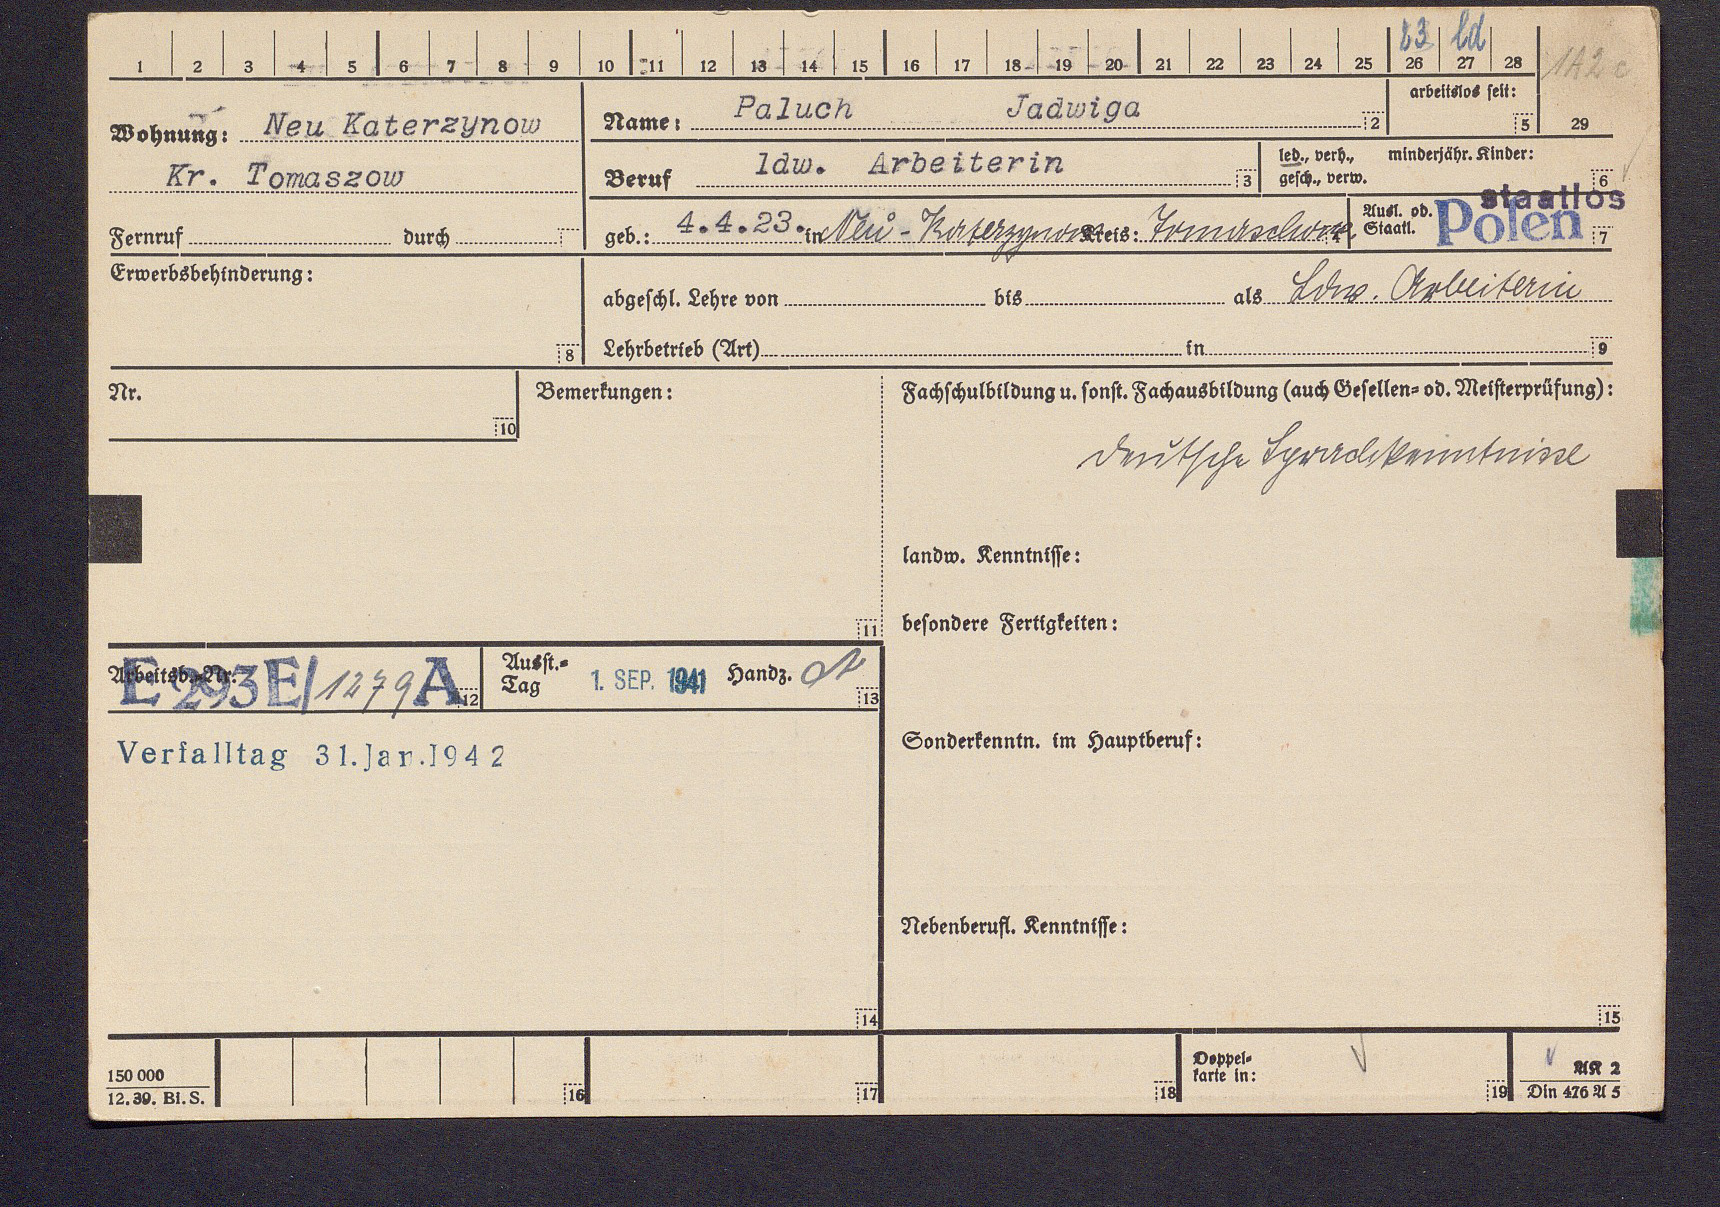 23 ld
1 2 3 4 5 6 7 8 9 10 11 12 13 14 15 16 17 18 19 20 21 22 23 24 25 26 27 28 1A2c
Wohnung: Neu Katerzynow
Kr. Tomaszow
Fernruf durch
Name: Paluch Jadwiga 2
arbeitslos seit: 5 29
Beruf ldw. Arbeiterin 3
led., verh., minderjähr. Kinder:
gesch., verw. 6
geb.: 4.4.23. in Neu-Katerzynow Kreis: Tomaschow 4
Ausl. od. Staatl. staatlos Polen 7
Erwerbsbehinderung:
8
abgeschl. Lehre von bis als Ldw. Arbeiterin
Lehrbetrieb (Art) in 9
Nr.
10
Bemerkungen:
11
Fachschulbildung u. sonst. Fachausbildung (auch Gesellen- od. Meisterprüfung):
deutsche Sprachkenntnisse
landw. Kenntnisse:
besondere Fertigkeiten:
Arbeitsb.-Nr. E 293E/1279 A 12
Ausst.-
Tag 1. SEP. 1941 Handz. 13
Verfalltag 31.Jan.1942
14
Sonderkenntn. im Hauptberuf:
Nebenberufl. Kenntnisse:
15
150 000
12. 39. Bi. S.
16 17 18
Doppel-
karte in: 19
AK 2
Din 476 A 5